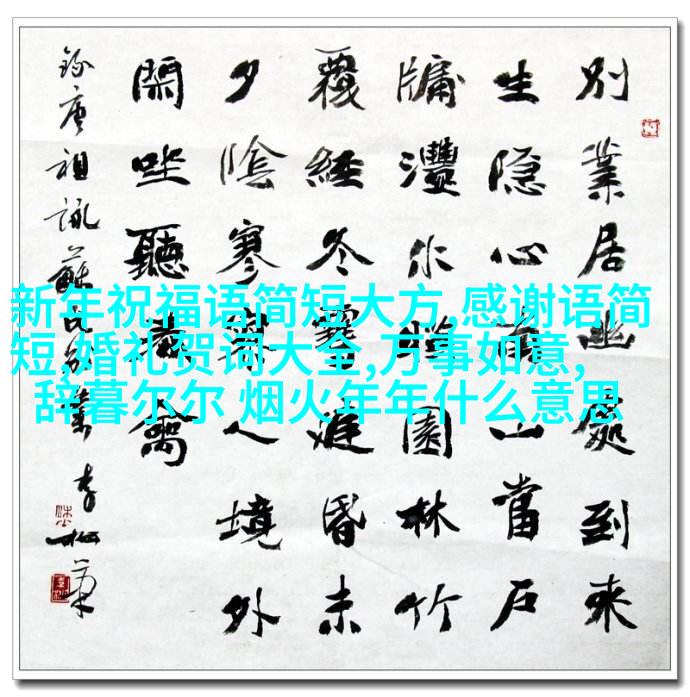 別業居幽處到來
生隐心南山當户
牖灃水映園林竹
覆經冬雪庭昏未
夕陰寥寥人境外
閑坐聽春禽
錄唐祖詠蘇氏別業
新年祝福语简短大方,感谢语简
短,婚礼贺词大全,万事如意,
辞暮尔尔 烟火年年什么意思